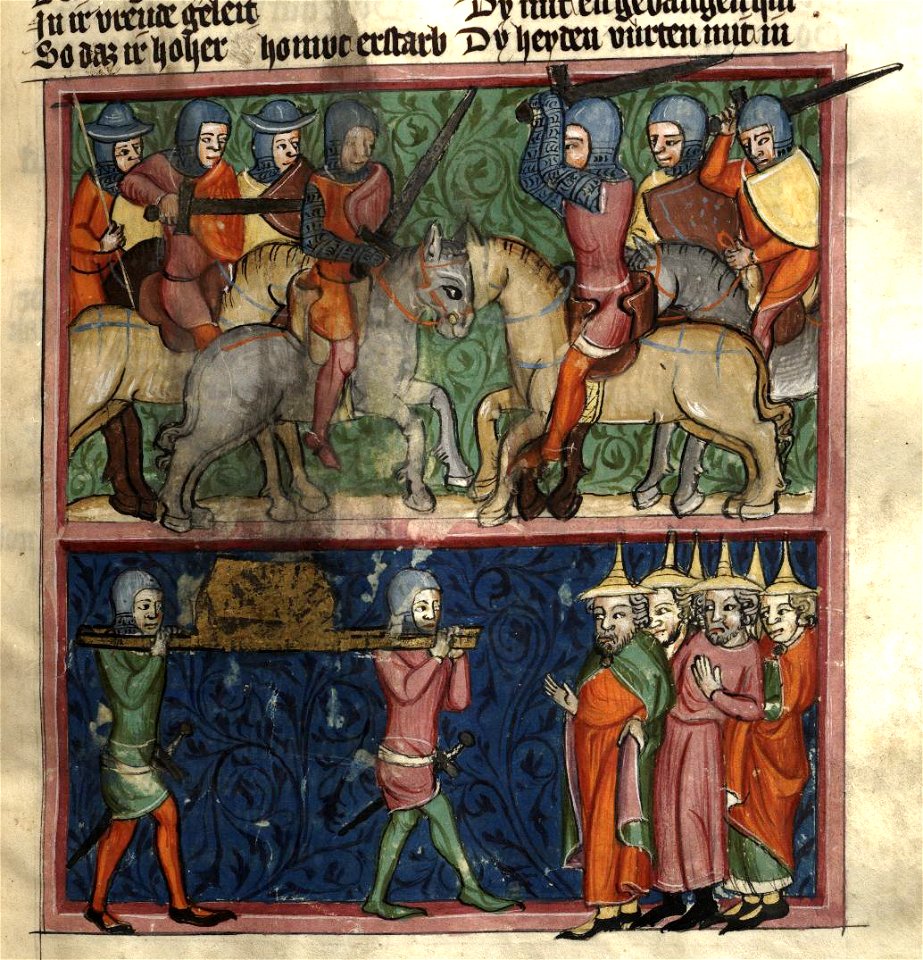 In ir vreude geleit
So daz ir hoher homut erstarb
Dy mit en gevangen
Dy heyden vurten mit in